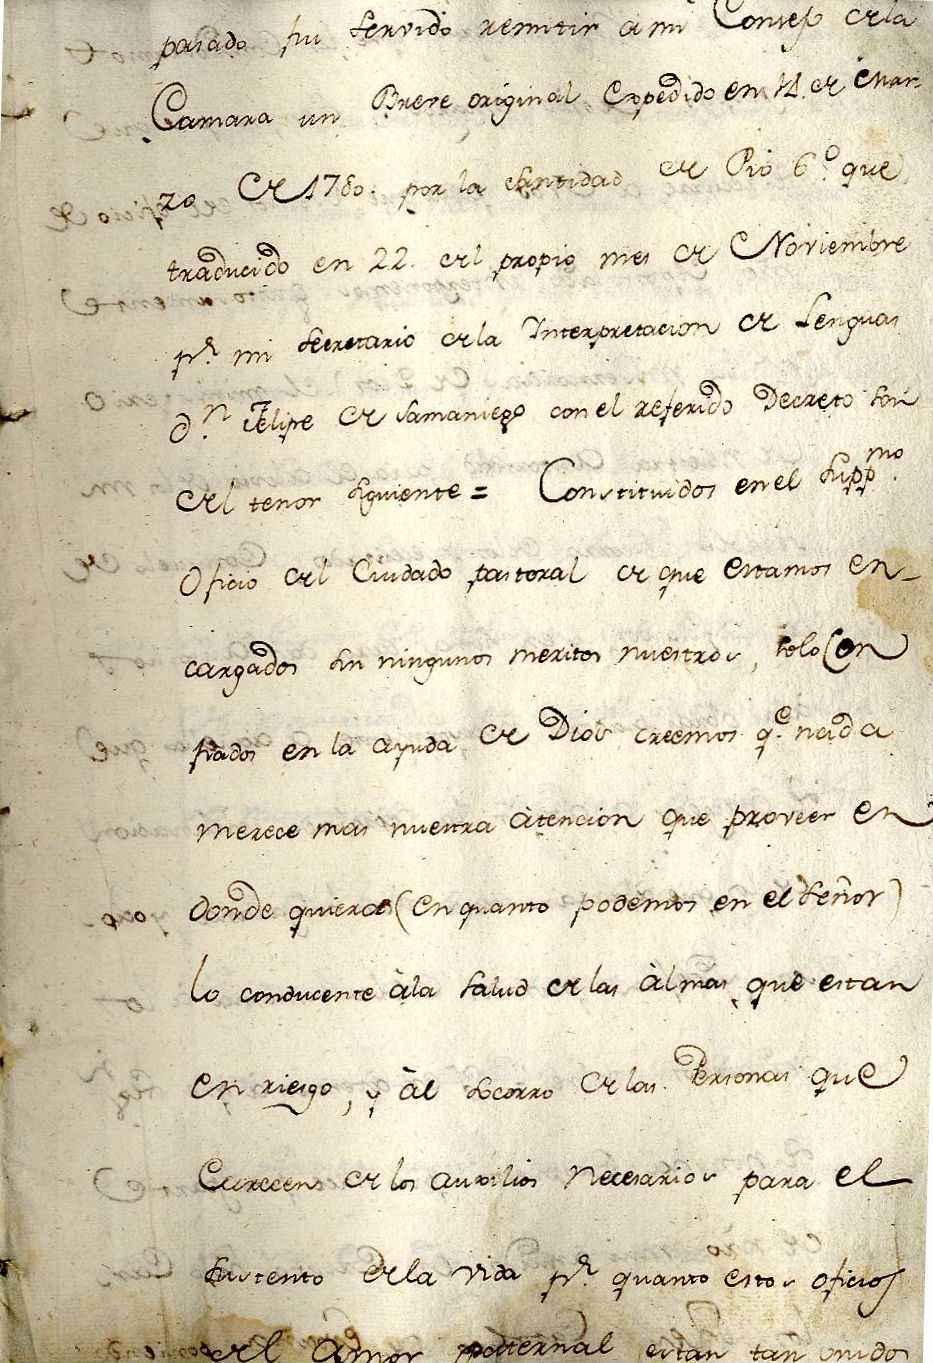 pasado fui servido remitir a mi Consejo de la
Camara un Breve original Expedido en 14. de Mar-
zo de 1780. por la Santidad de Pio 6.º que
traducido en 22. del propio mes de Noviembre
pr. mi secretario de la Interpretacion de Lenguas
dn. Felipe de Samaniego con el referido Decreto son
del tenor siguiente = Constituidos en el supp.mo
Oficio del Cuidado pastoral de que estamos en-
cargados sin ningunos meritos nuestros, solo con
fiados en la ayuda de Dios creemos q.e nada
merece mas nuestra àtencion que proveer en
donde quiera (en quanto podemos en el señor)
lo conducente àla salud de las àlmas que estan
en riesgo, y àl socorro de las Personas que
Carecen de los auxilios necesarios para el
sustento de la vida pr. quanto estos oficios
del Amor paternal estan tan unidos